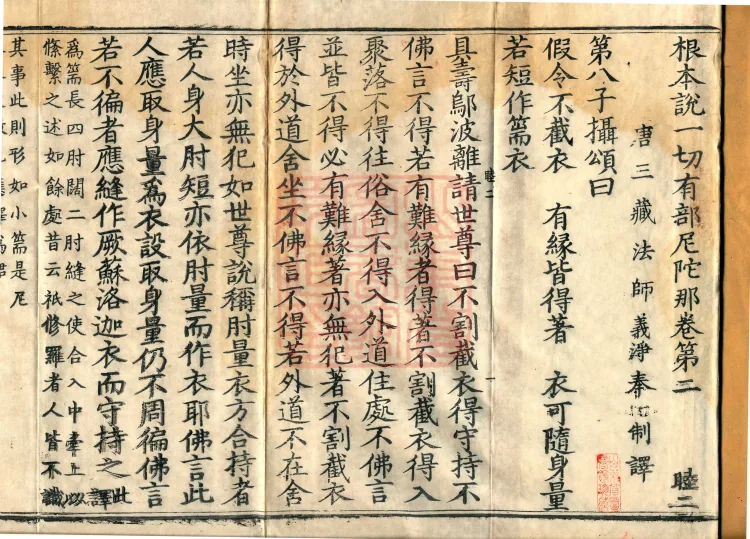 根本說一切有部尼陀那卷第二 睦二
唐三藏法師義淨奉 制譯
第八子攝頌曰
假令不截衣 有緣皆得著 衣可隨身量
若短作篅衣
睦二
具壽鄔波離請世尊曰不割截衣得守持不
佛言不得若有難緣者得著不割截衣得入
聚落不得往俗舍不得入外道住處不佛言
並皆不得必有難緣著亦無犯著不割截衣
得於外道舍坐不佛言不得若外道不在舍
時坐亦無犯如世尊說稱肘量衣方合持者
若人身大肘短亦依肘量而作衣耶佛言此
人應取身量爲衣設取身量仍不周徧佛言
若不徧者應縫作厥蘇洛迦衣而守持之 此譯
爲篅長四肘闊二肘縫之使合入中牽上以
絛繫之述如餘處昔云祇修羅者人皆不識
其事此則形如小篅是尼